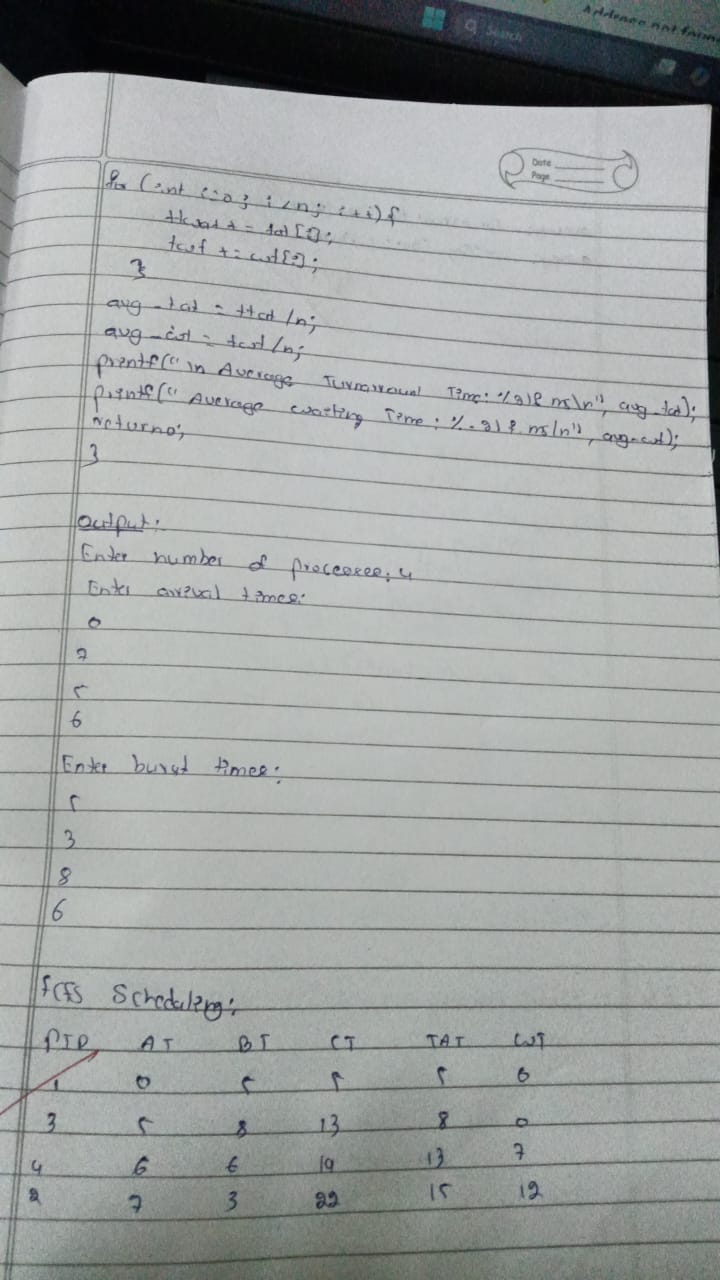 Address not foun
Search
Date
Page
for (int i=0; i<n; i++){
ttat += tat[i];
twt += wt[i];
}
avg_tat = ttat/n;
avg_wt = twt/n;
printf("\n Average Turnaround Time: %.2lf ms\n", avg_tat);
printf(" Average waiting Time: %.2lf ms\n", avg_wt);
return 0;
}
Output:
Enter number of processes: 4
Enter arrival times:
0
7
5
6
Enter burst times:
5
3
8
6
FCFS Scheduling:
PID AT BT CT TAT WT
1 0 5 5 5 0
3 5 8 13 8 0
4 6 6 19 13 7
2 7 3 22 15 12